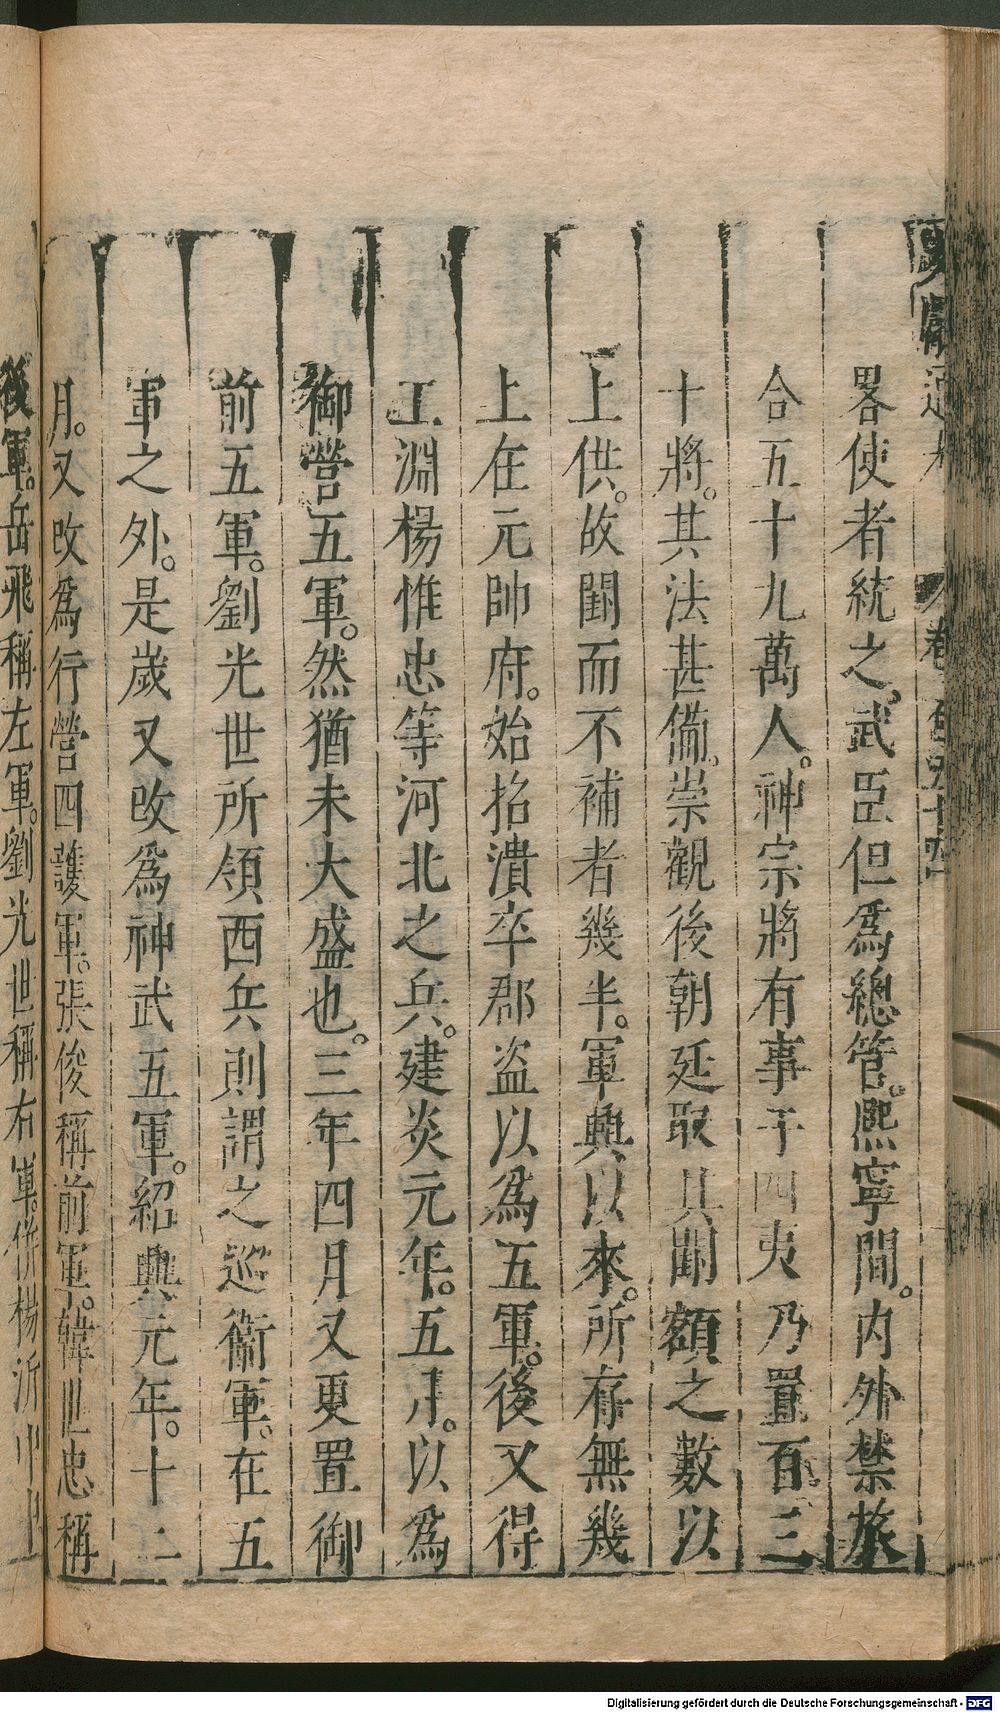 文獻通考 卷一百五十四
畧使者統之武臣但爲總管。熙寧間。内外禁旅
合五十九萬人。神宗將有事于四夷乃置百三
十將。其法甚備。崇觀後朝廷取其闕額之數以
上供。故闕而不補者幾半。軍興以來。所存無幾
上在元帥府。始招潰卒郡盜以爲五軍。後又得
王淵楊惟忠等河北之兵。建炎元年。五月。以爲
御營五軍。然猶未大盛也。三年四月又更置御
前五軍。劉光世所領西兵則謂之巡衞軍。在五
軍之外。是歲又改爲神武五軍。紹興元年。十二
月。又改爲行營四護軍。張俊稱前軍。韓世忠稱
後軍。岳飛稱左軍。劉光世稱右軍。併楊沂中
Digitalisierung gefördert durch die Deutsche Forschungsgemeinschaft - DFG